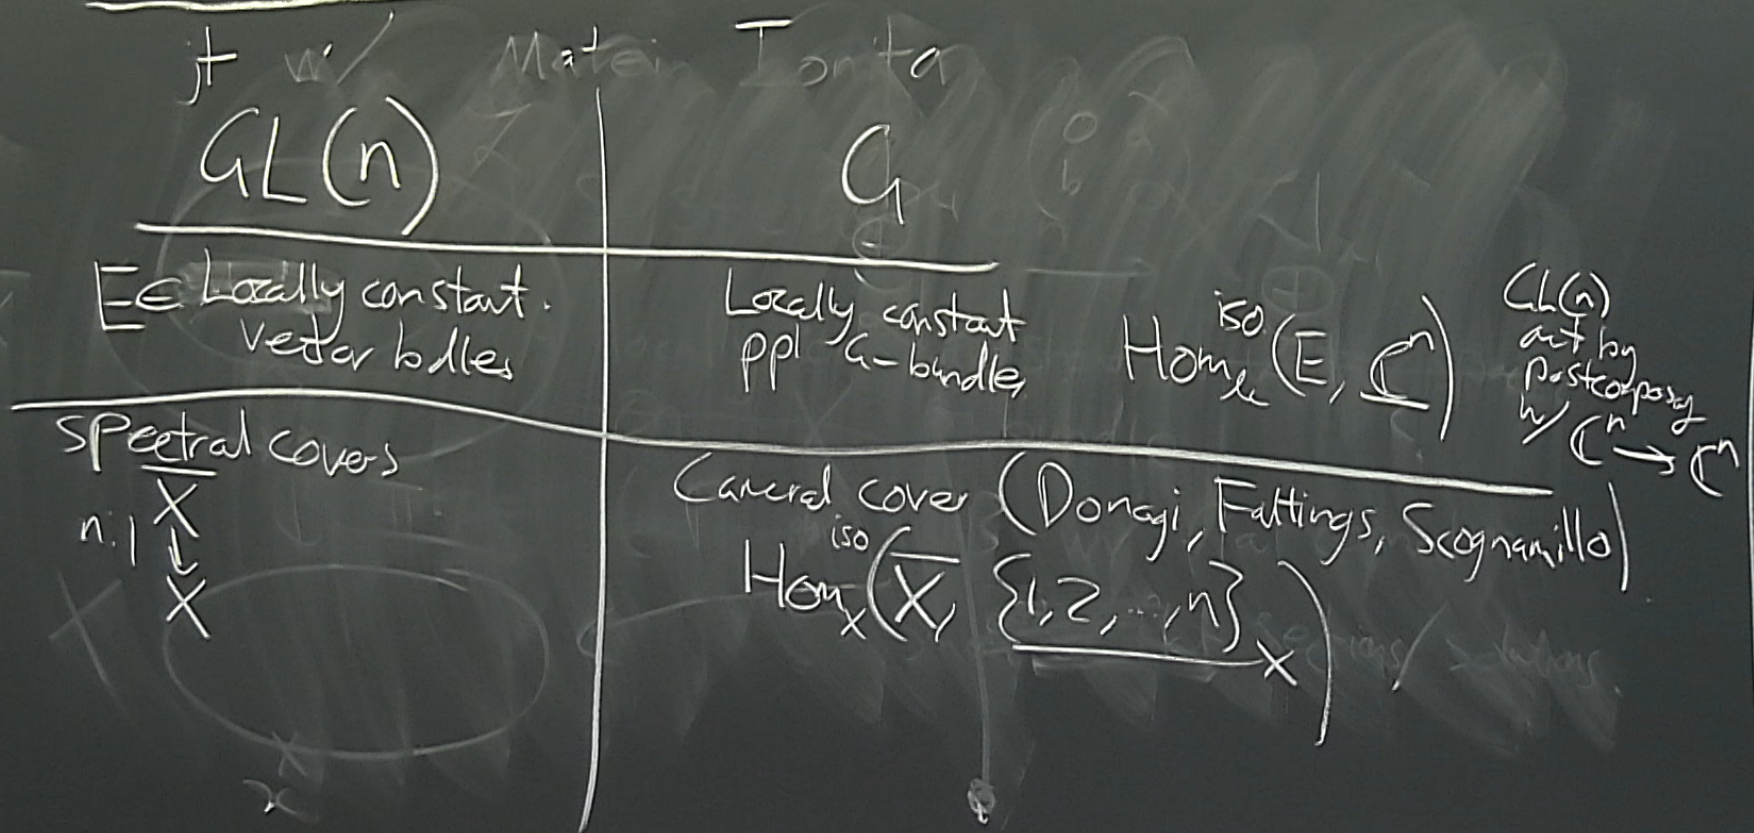 jt w/ Matei Ionita
GL(n)
G
E ∈ Locally constant
vector bdles
Locally constant
ppl G-bundles
Hom^iso (E, ℂ^n)
GL(n)
act by
postcomposing
w/ ℂ^n → ℂ^n
spectral covers
X̅
n:1 ↓
X
Cameral cover (Donagi, Faltings, Scognamillo)
Hom_X^iso (X̅, {1,2,...,n}_X)